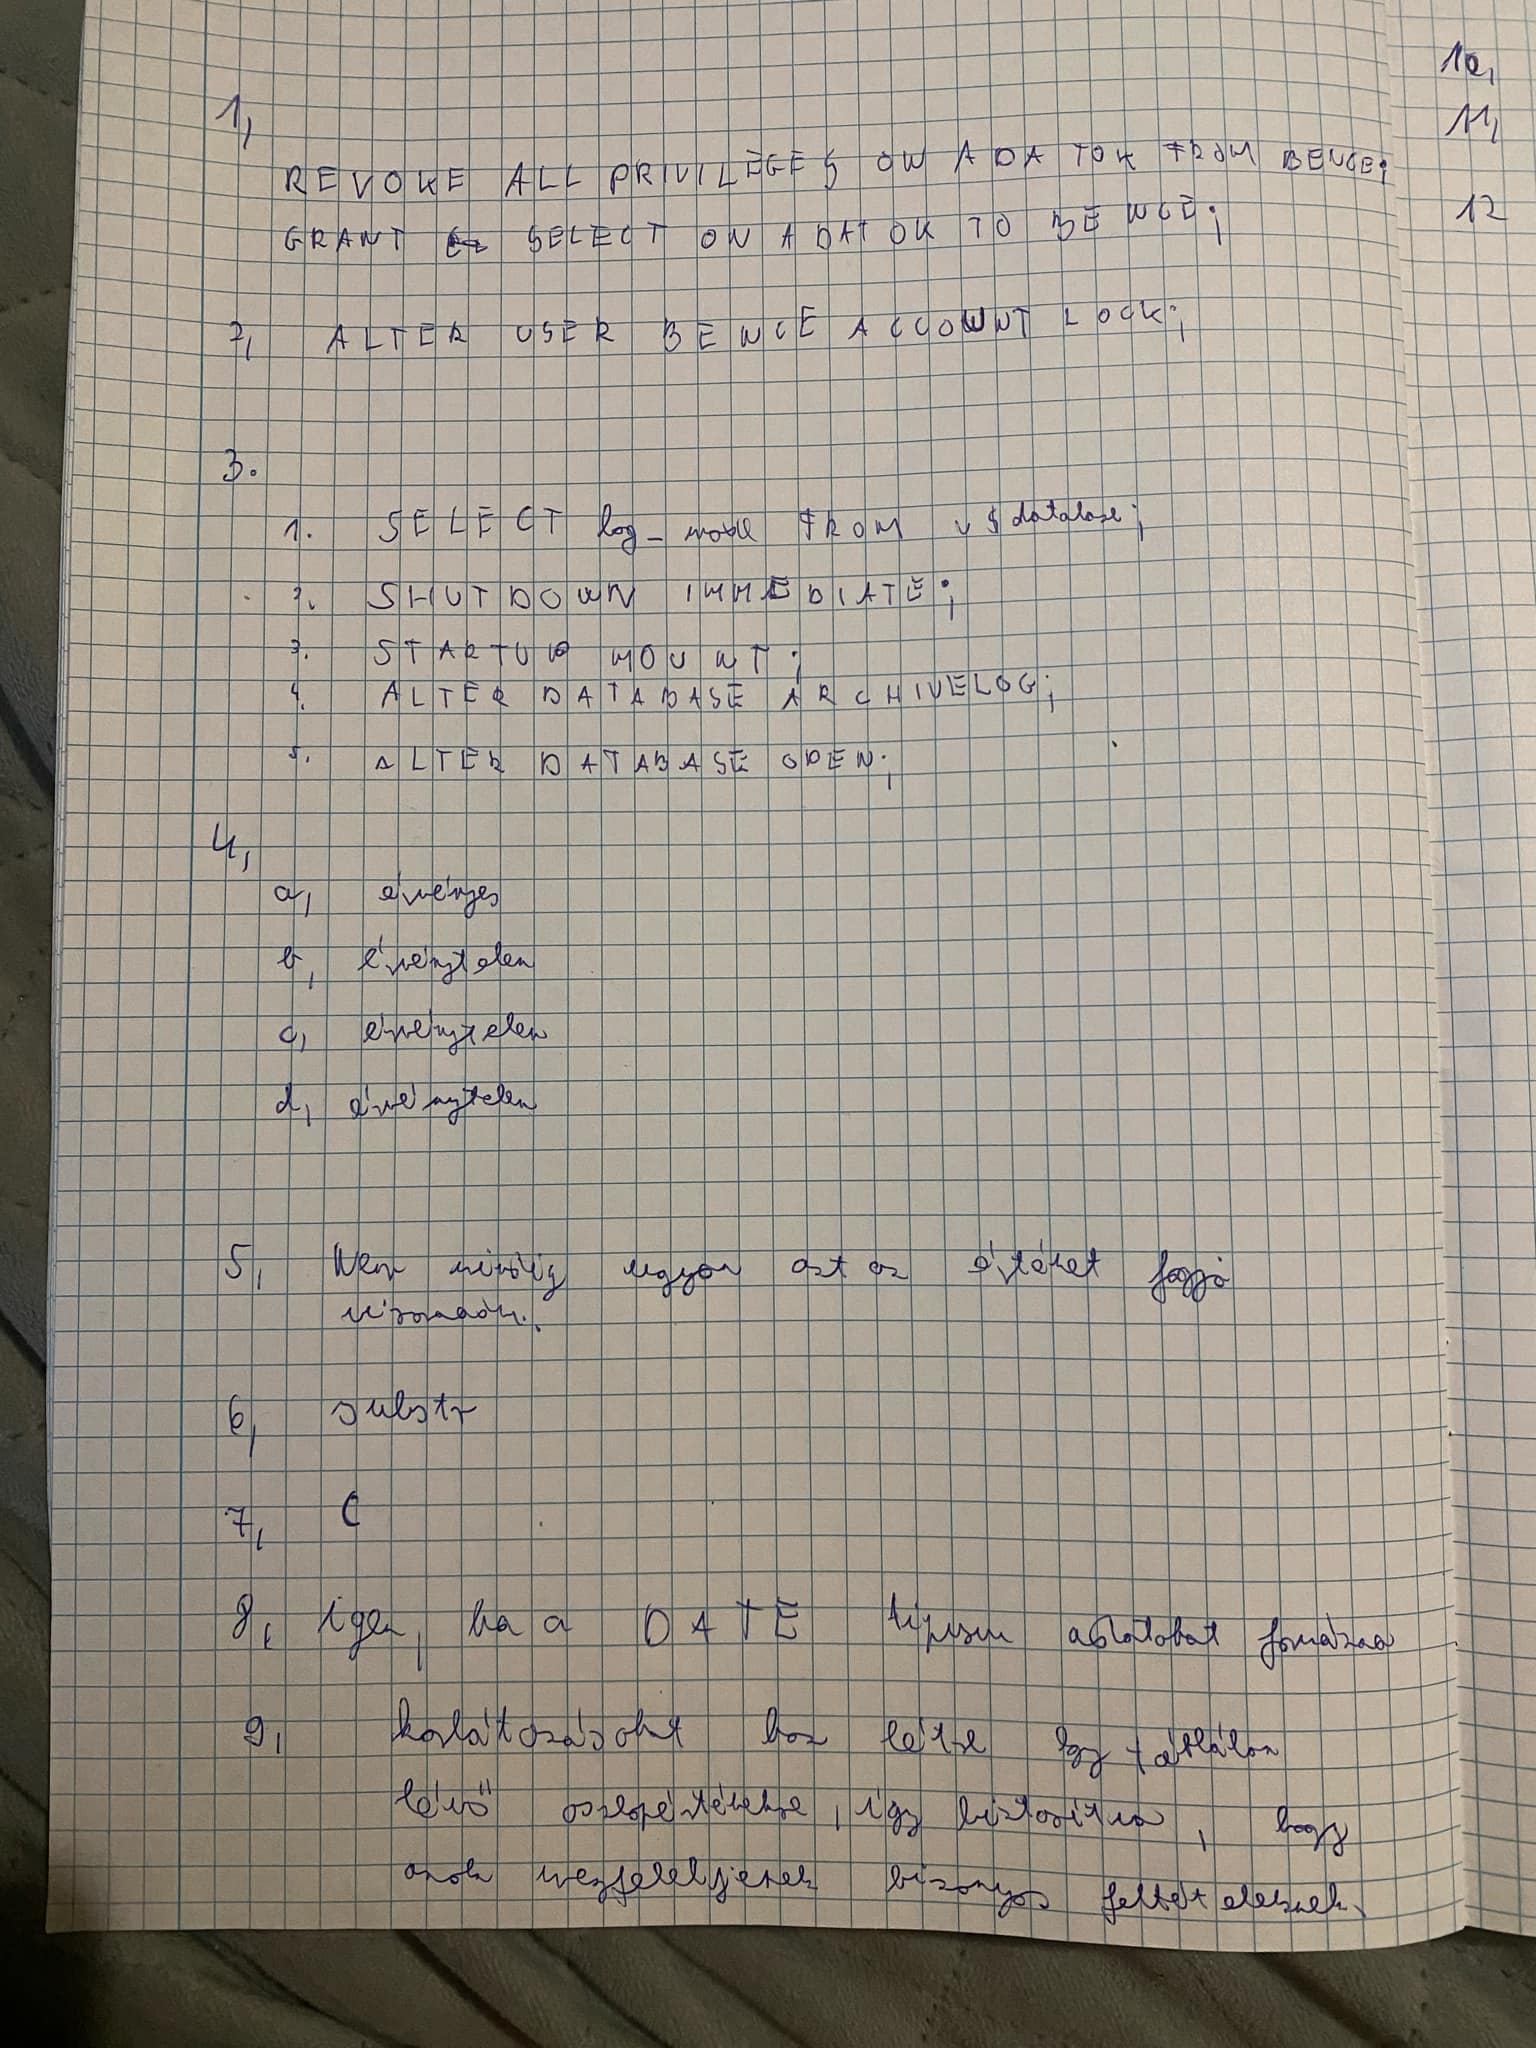 1,
REVOKE ALL PRIVILEGES ON ADATOK FROM BENCE;
GRANT SELECT ON ADATOK TO BENCE;
2, ALTER USER BENCE ACCOUNT LOCK;
3.
1. SELECT log_mode FROM v$database;
2. SHUTDOWN IMMEDIATE;
3. STARTUP MOUNT;
4. ALTER DATABASE ARCHIVELOG;
5. ALTER DATABASE OPEN;
4,
a, érvényes
b, érvénytelen
c, érvénytelen
d, érvénytelen
5, Nem mindig ugyan azt az értéket fogja
visszaadni.
6, substr
7, C
8, igen, ha a DATE típusu adatokat formázza
9, korlátozásokat hoz létre egy táblában
lévő oszlopértékekre, így biztosítva, hogy
azok megfeleljenek bizonyos feltételeknek.
10,
11,
12